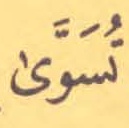 تُسَوَّىٰ